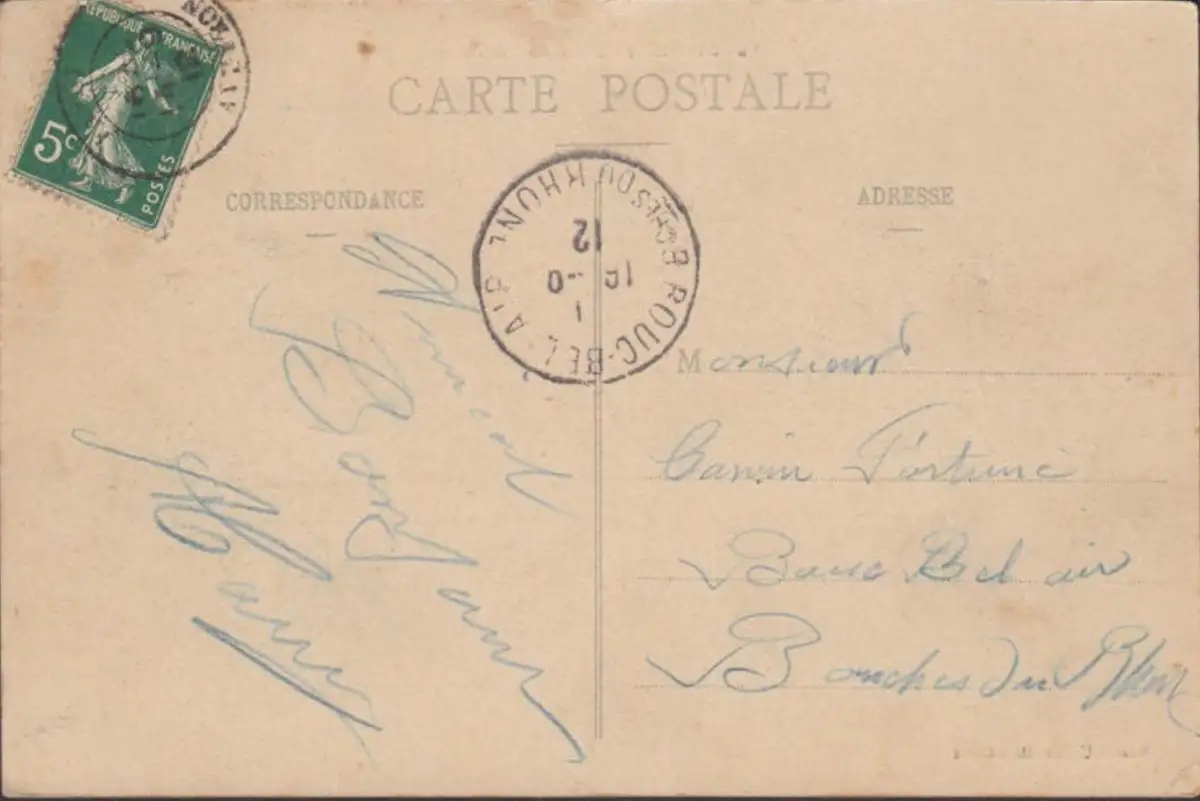 RÉPUBLIQUE FRANÇAISE
5c
POSTES
CARTE POSTALE
CORRESPONDANCE
ADRESSE
BOUC-BEL-AIR
BCHES DU RHONE
12
16 -0
1
Amical
Bonjour
Monsieur
Fortuné
Bouc Bel air
Bouches du Rhon